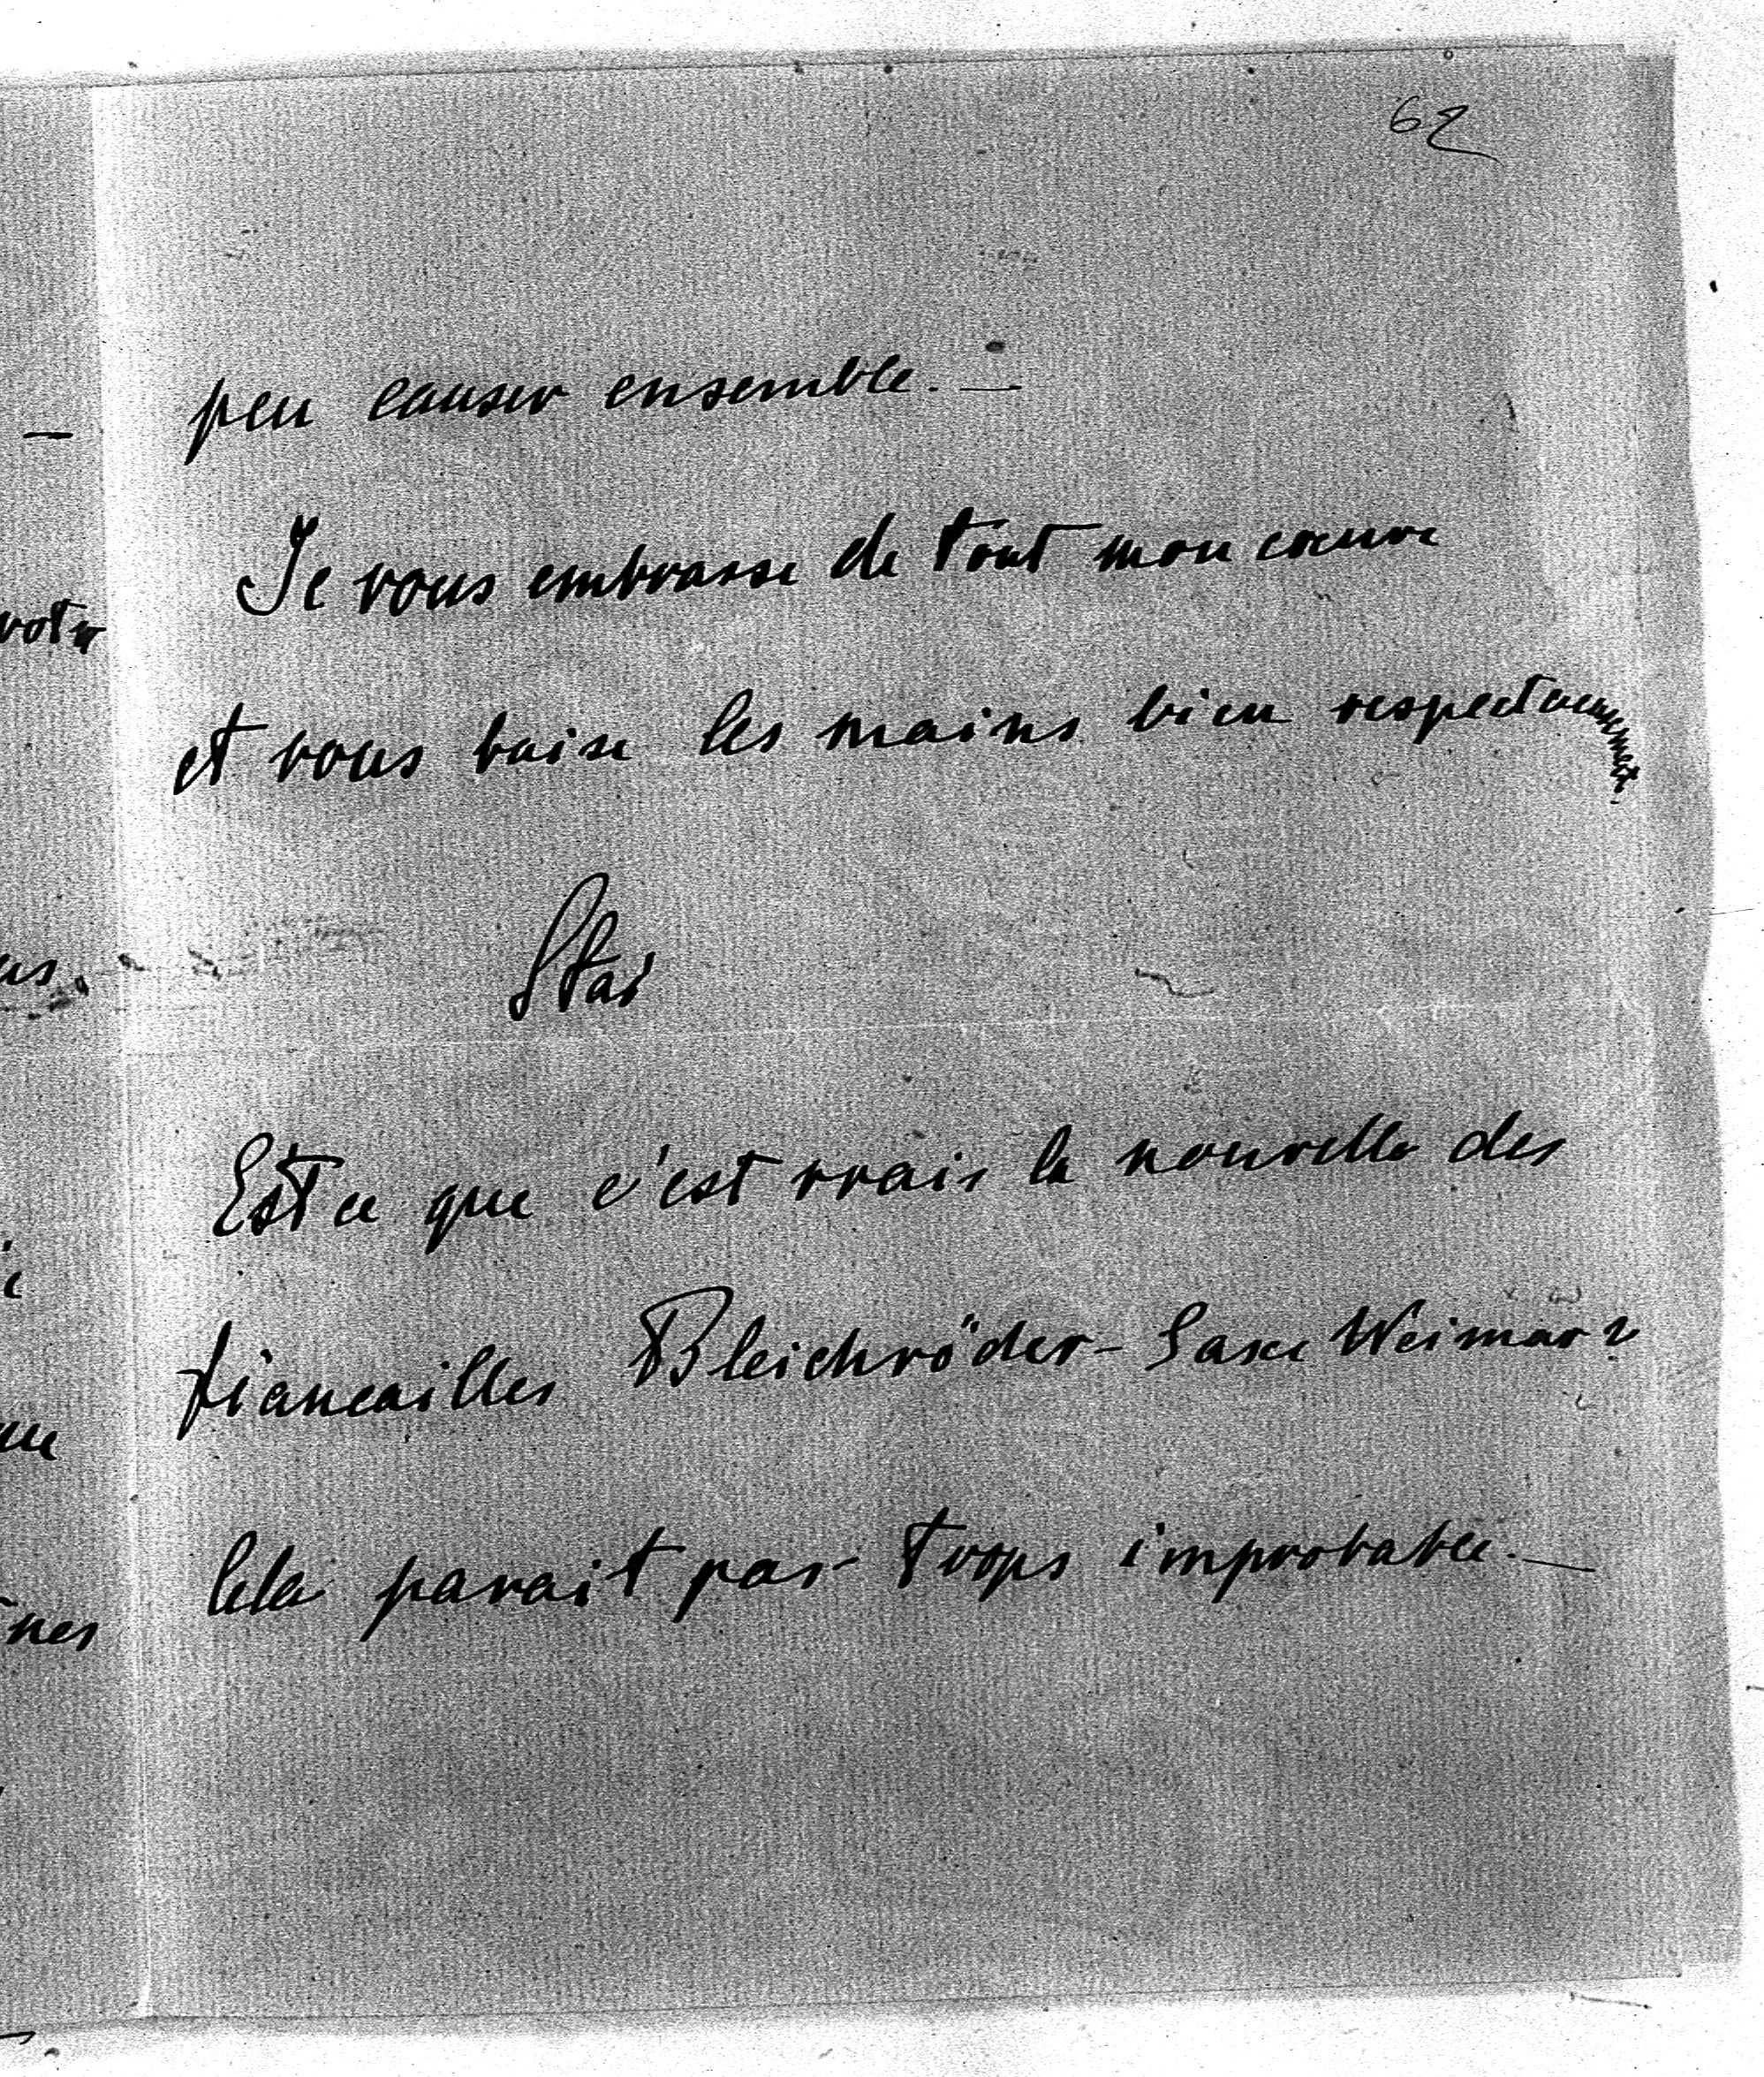 62
peu causer ensemble. —
Je vous embrasse de tout mon cœure
et vous baise les mains bien respectueusement.
Star
Est ce que c'est vrais la nouvelle des
fiancailles Bleichröder - Saxe Weimar?
Cela parait pas trops improbable. —